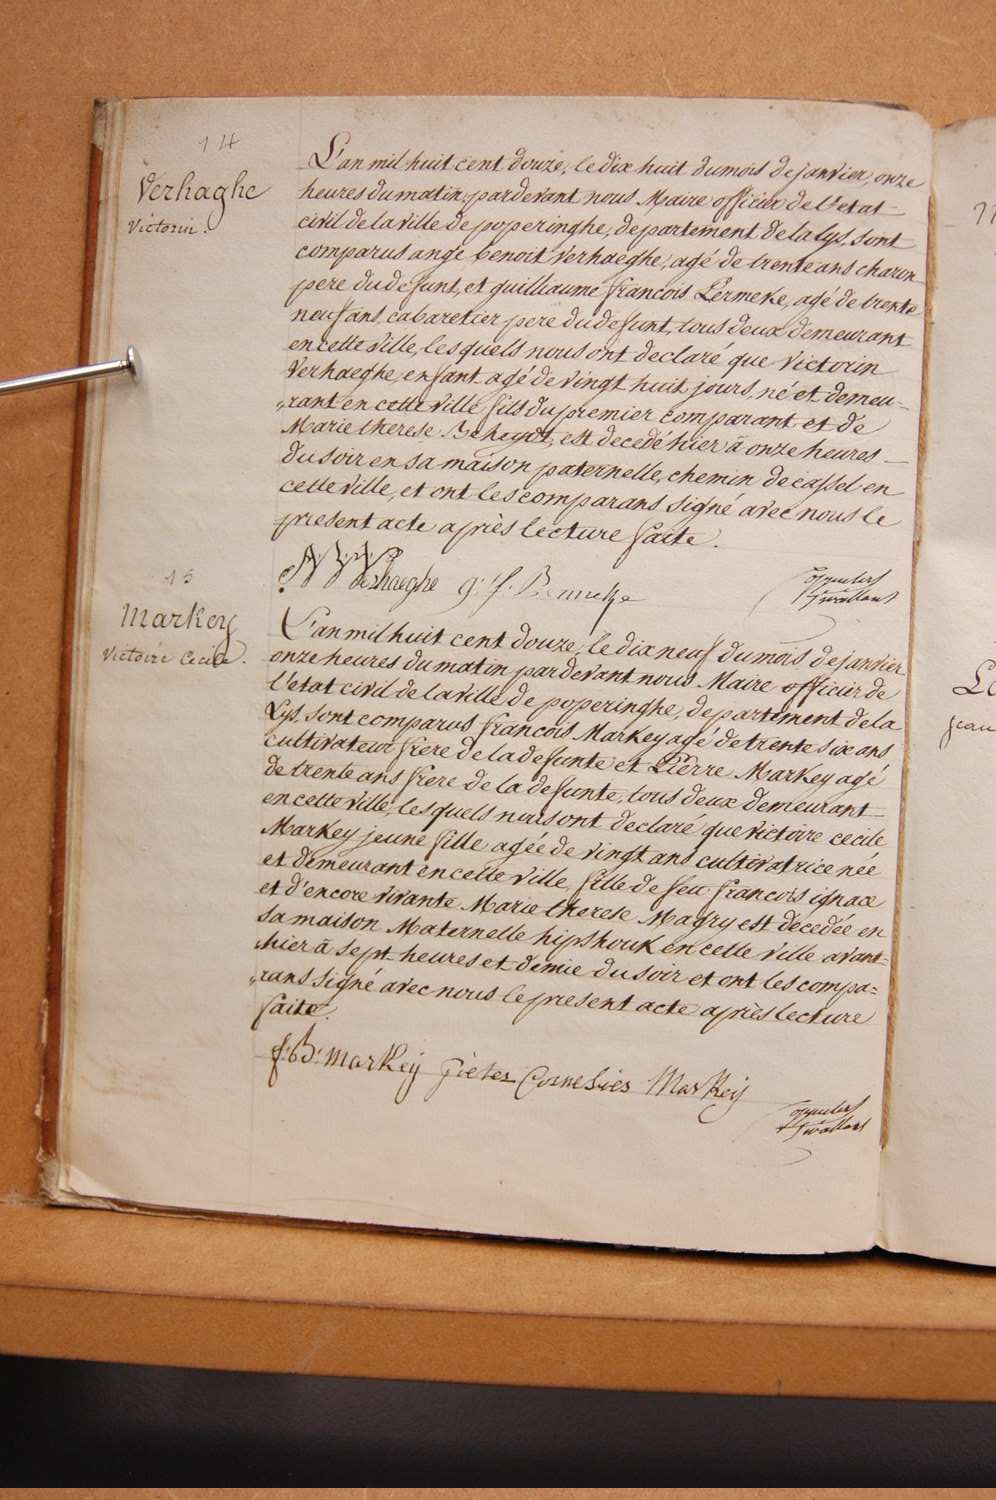 14
Verhaghe
Victorin.
L'an mil huit cent douze, le dix huit du mois de janvier, onze
heures du matin, par devant nous Maire officier de l'etat
civil de la ville de poperinghe, departement de la lys, sont
comparus ange benoit Verhaeghe, agé de trente ans charon
pere du defunt, et guilliaume francois Lermeke, agé de trente
neuf ans, cabaretier pere du defunt, tous deux demeurant
en cette ville, les quels nous ont declaré que victorin
Verhaeghe, enfant agé de vingt huit jours, né et demeu-
„rant en cette ville fils du premier comparant et de
Marie therese est decedé hier à onze heures
du soir en sa maison paternelle, chemin de cassel en
cette ville, et ont les comparans signé avec nous le
present acte après lecture faite.
Verhaeghe g: f.
15
Markey
Victoire Cecile.
L'an mil huit cent douze, le dix neuf du mois de janvier
onze heures du matin par devant nous Maire officier de
l'etat civil de la ville de poperinghe, departement de la
Lys, sont comparus francois Markey agé de trente six ans
cultivateur frere de la defunte et Pierre Markey agé
de trente ans frere de la defunte, tous deux demeurant
en cette ville, les quels nous ont declaré que victoire cecile
Markey jeune fille agée de vingt ans cultivatrice née
et demeurant en cette ville, fille de feu francois ignace
et d'encore vivante Marie therese Magry est decedée en
sa maison Maternelle hipshouk en cette ville avant-
hier à sept heures et demie du soir et ont les compa=
„rans signé avec nous le present acte après lecture
faite.
f: B: Markeÿ Pieter Cornelies Markeÿ